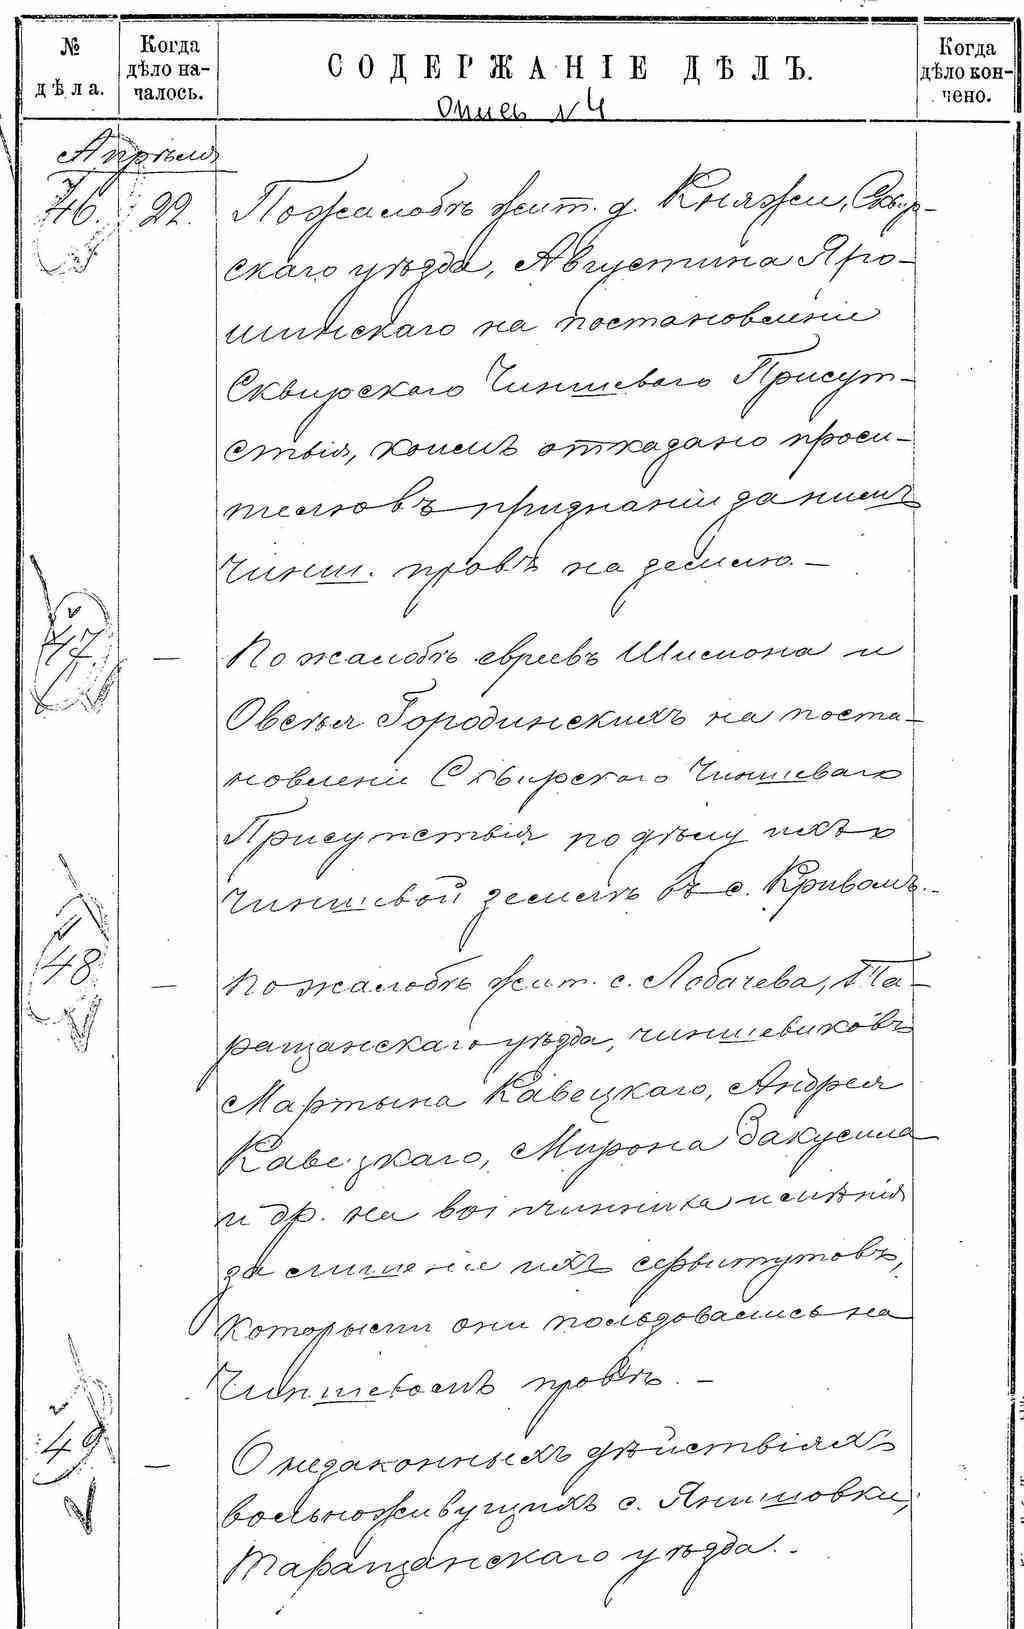 № дѣла.
Когда дѣло началось.
СОДЕРЖАНІЕ ДѢЛЪ.
Когда дѣло кончено.
Опись №4
Апрѣля
46. 22. По жалобѣ жит. д. Княжи, Сквир-
скаго уѣзда, Августина Яро-
шинскаго на постановленіе
Сквирскаго Чиншеваго Присут-
ствія, коимъ отказано проси-
телю въ признаніи за нимъ
Чинш. правъ на землю. —
47 — По жалобѣ евреевъ Шимона и
Овсѣя Городинскихъ на поста-
новленіе Сквирскаго Чиншеваго
Присутствія по дѣлу ихъ о
Чиншевой землѣ въ с. Кривомъ. —
48 — По жалобѣ жит. с. Лобачева, Та-
ращанскаго уѣзда, чиншевиковъ
Мартына Кавецкаго, Андрея
Кавецкаго, Мирона Закусила
и др. на вотчинника имѣнія
за лишеніе ихъ сервитутовъ,
которыми они пользовались на
Чиншевомъ правѣ. —
49 — О незаконныхъ дѣйствіяхъ
вольноживущихъ с. Янишовки,
Таращанскаго уѣзда.